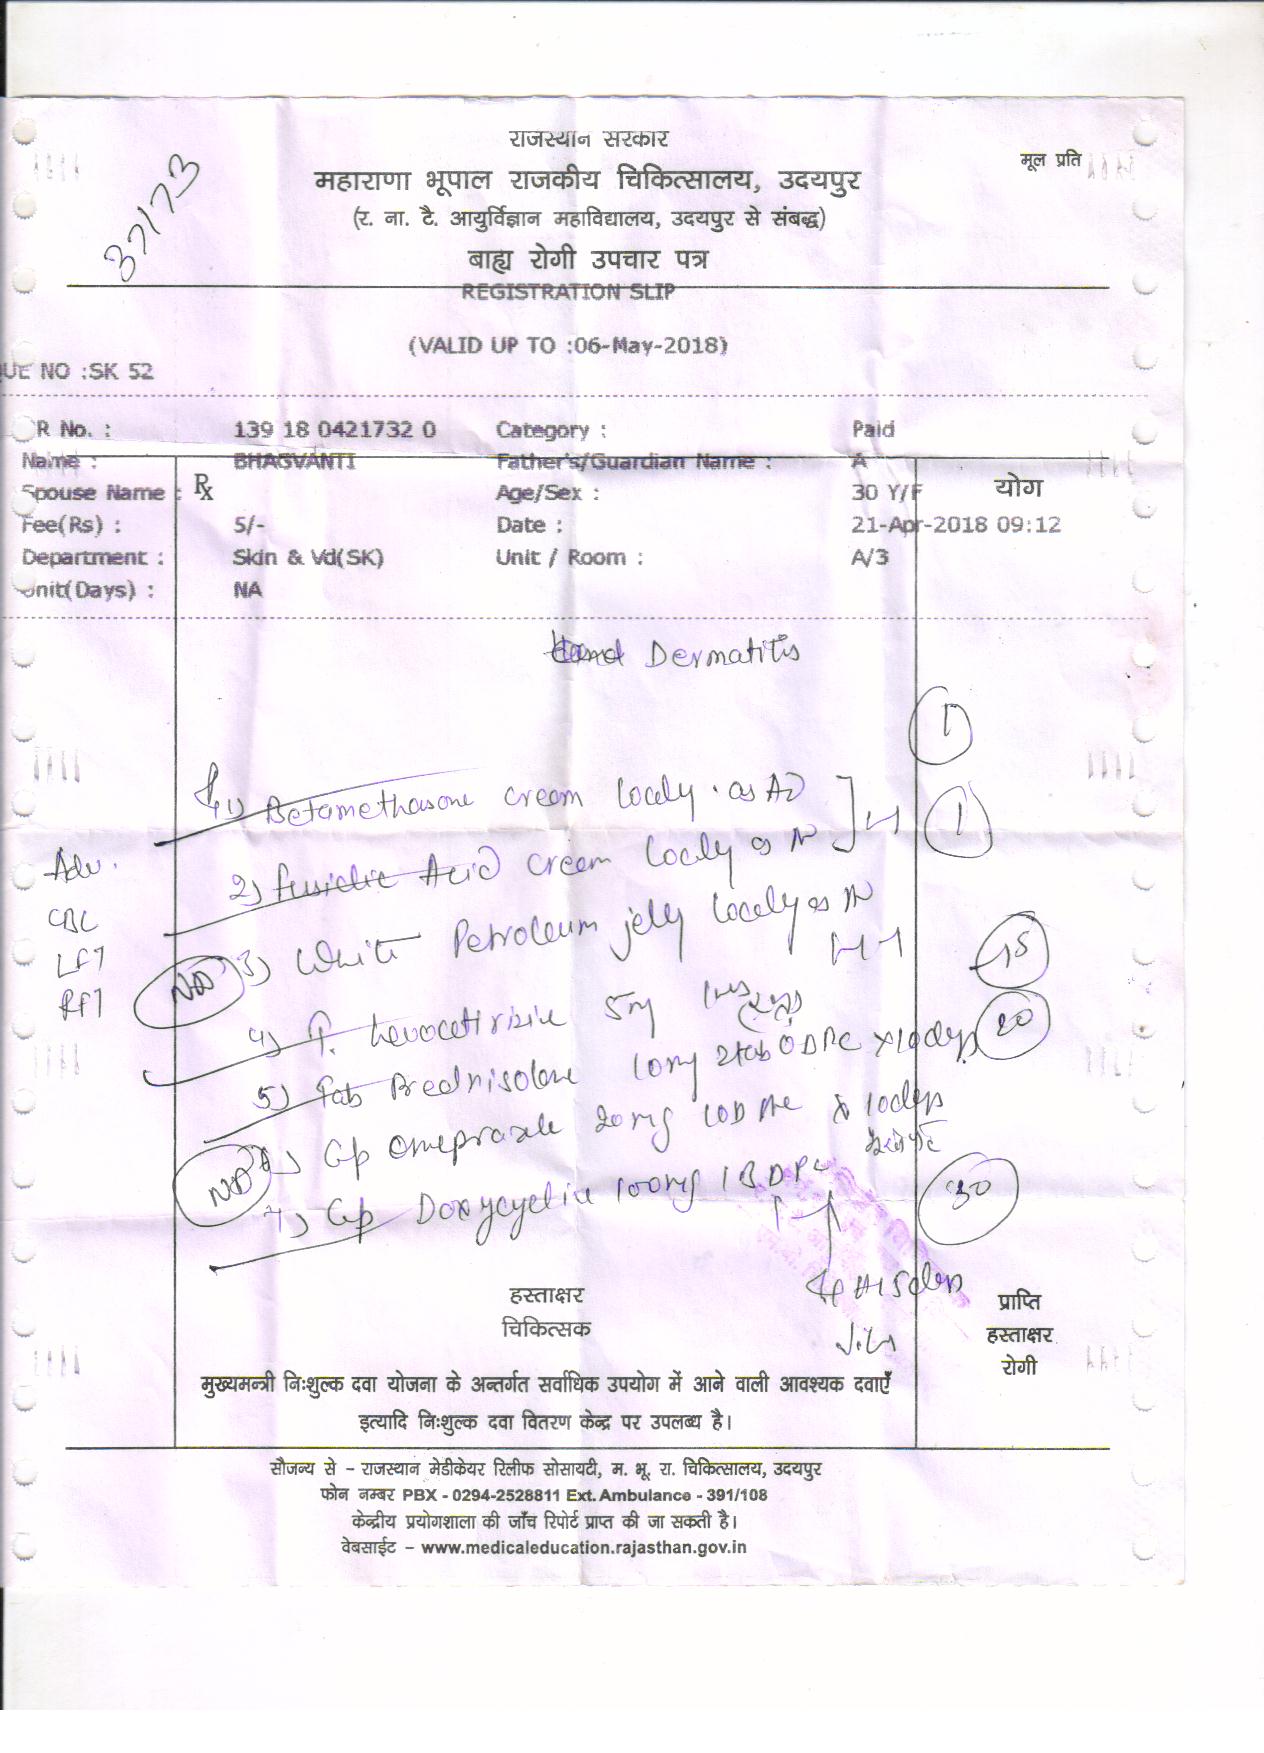 राजस्थान सरकार
मूल प्रति
महाराणा भूपाल राजकीय चिकित्सालय, उदयपुर
37173
(र. ना. टै. आयुर्विज्ञान महाविद्यालय, उदयपुर से संबद्ध)
बाह्य रोगी उपचार पत्र
REGISTRATION SLIP
(VALID UP TO :06-May-2018)
UE NO :SK 52
R No. : 139 18 0421732 0 Category : Paid
Name : BHAGVANTI Father's/Guardian Name : A
Spouse Name : Rx Age/Sex : 30 Y/F योग
Fee(Rs) : 5/- Date : 21-Apr-2018 09:12
Department : Skin & Vd(SK) Unit / Room : A/3
Unit(Days) : NA
Hand Dermatitis
1
1) Betamethasone cream localy as AD
1
2) Fusidic Acid cream localy as
Adv.
CBC
LFT
RFT
ND 3) White Petroleum jelly localy as
15
4) T. Levocetrizine 5mg
5) Tab Prednisolone 10mg 2tab OD PC x10days
20
ND 6) Cap omeprazole 20mg 1OD x 10days
7) Cap Doxycycline 100mg 1 BD PC
30
15days
हस्ताक्षर
चिकित्सक
प्राप्ति
हस्ताक्षर
रोगी
मुख्यमन्त्री निःशुल्क दवा योजना के अन्तर्गत सर्वाधिक उपयोग में आने वाली आवश्यक दवाएँ
इत्यादि निःशुल्क दवा वितरण केन्द्र पर उपलब्ध है।
सौजन्य से – राजस्थान मेडीकेयर रिलीफ सोसायटी, म. भू. रा. चिकित्सालय, उदयपुर
फोन नम्बर PBX - 0294-2528811 Ext. Ambulance - 391/108
केन्द्रीय प्रयोगशाला की जाँच रिपोर्ट प्राप्त की जा सकती है।
वेबसाईट – www.medicaleducation.rajasthan.gov.in